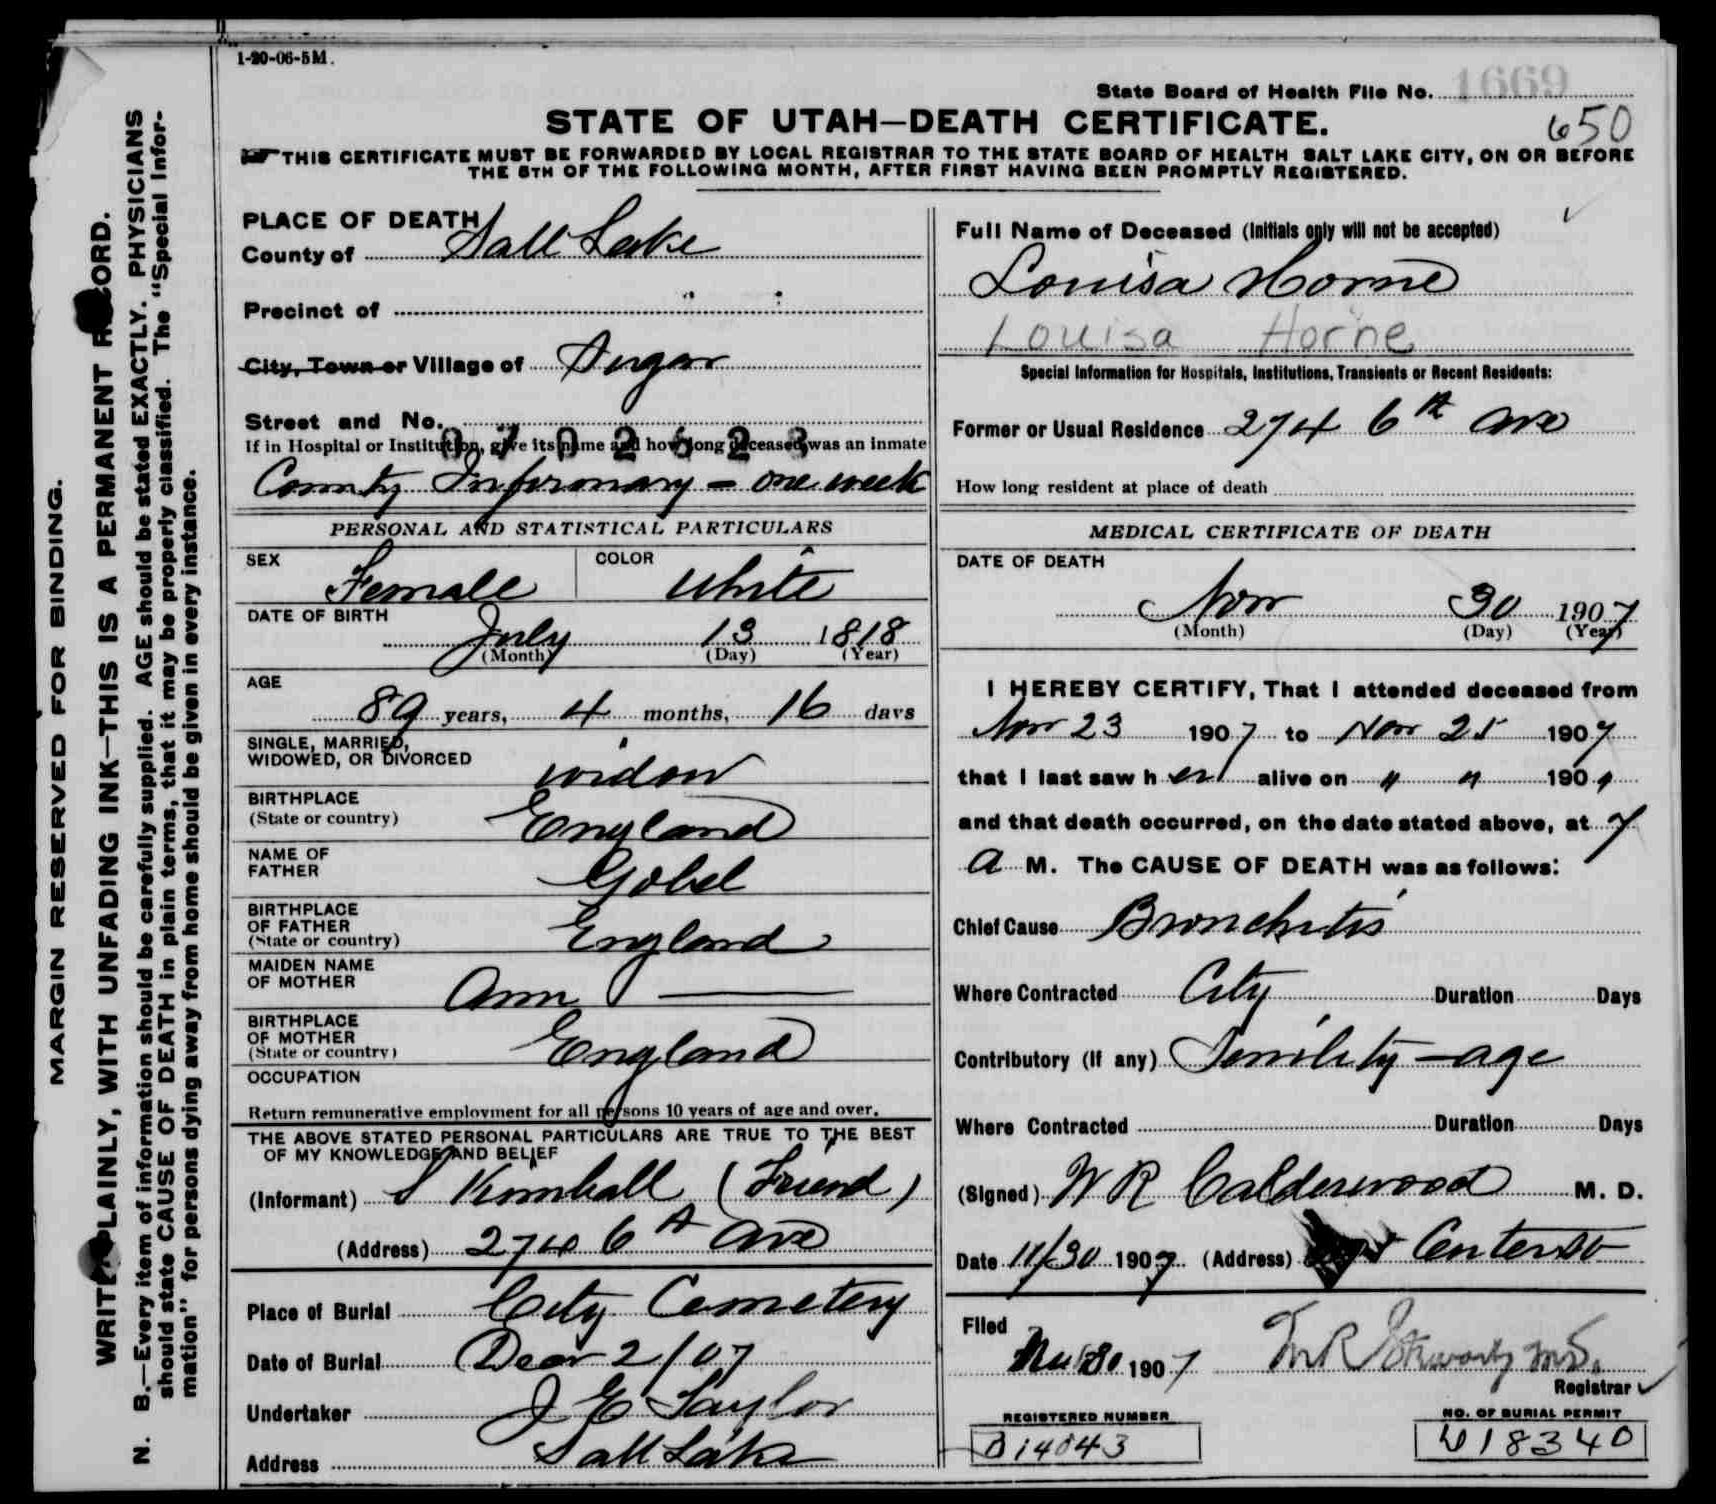 1-20-06-5M.
State Board of Health File No. 1669
STATE OF UTAH—DEATH CERTIFICATE.
650
THIS CERTIFICATE MUST BE FORWARDED BY LOCAL REGISTRAR TO THE STATE BOARD OF HEALTH SALT LAKE CITY, ON OR BEFORE
THE 5TH OF THE FOLLOWING MONTH, AFTER FIRST HAVING BEEN PROMPTLY REGISTERED.
MARGIN RESERVED FOR BINDING.
WRITE PLAINLY, WITH UNFADING INK—THIS IS A PERMANENT RECORD.
N. B.—Every item of information should be carefully supplied. AGE should be stated EXACTLY. PHYSICIANS
should state CAUSE OF DEATH in plain terms, that it may be properly classified. The "Special Infor-
mation" for persons dying away from home should be given in every instance.
PLACE OF DEATH
County of Salt Lake
Precinct of
City, Town or Village of Sugar
Street and No.
0702623
If in Hospital or Institution, give its name and how long deceased was an inmate
County Infirmary - one week
PERSONAL AND STATISTICAL PARTICULARS
SEX Female COLOR White
DATE OF BIRTH
July 13 1818
(Month) (Day) (Year)
AGE
89 years, 4 months, 16 days
SINGLE, MARRIED,
WIDOWED, OR DIVORCED widow
BIRTHPLACE
(State or country) England
NAME OF
FATHER Gobel
BIRTHPLACE
OF FATHER
(State or country) England
MAIDEN NAME
OF MOTHER Ann
BIRTHPLACE
OF MOTHER
(State or country) England
OCCUPATION
Return remunerative employment for all persons 10 years of age and over.
THE ABOVE STATED PERSONAL PARTICULARS ARE TRUE TO THE BEST
OF MY KNOWLEDGE AND BELIEF
(Informant) S Kimball (Friend)
(Address) 274 6th Ave
Place of Burial City Cemetery
Date of Burial Dec 2/07
Undertaker J E Taylor
Address Salt Lake
Full Name of Deceased (Initials only will not be accepted)
Louisa Horne
Louisa Horne
Special Information for Hospitals, Institutions, Transients or Recent Residents:
Former or Usual Residence 274 6th Ave
How long resident at place of death
MEDICAL CERTIFICATE OF DEATH
DATE OF DEATH
Nov 30 1907
(Month) (Day) (Year)
I HEREBY CERTIFY, That I attended deceased from
Nov 23 1907 to Nov 25 1907
that I last saw her alive on " " 190"
and that death occurred, on the date stated above, at 7
a M. The CAUSE OF DEATH was as follows:
Chief Cause Bronchitis
Where Contracted City Duration Days
Contributory (If any) Senility - age
Where Contracted Duration Days
(Signed) W R Calderwood M. D.
Date 11/30 1907 (Address) Center St
Filed 1907
Registrar
REGISTERED NUMBER
B14043
NO. OF BURIAL PERMIT
618340